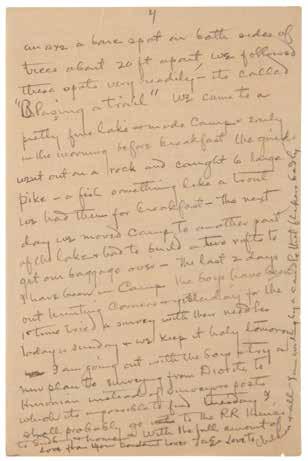 4
an axe a bare spot on both sides of
trees about 20 ft apart we followed
these spots very readily - its called
"Blazing a trail" We came to a
pretty fine Lake & made Camp & Early
in the morning before breakfast the guide
went out on a rock and caught 6 large
pike - a fish something like a trout
we had them for breakfast - the next
day we moved Camp to another part
of the Lake & had to build a raft to
get our baggage over - The last 2 days
I have been in Camp The boys have been
out hunting Corners & yesterday for the
1st time tried a survey with their needles
today is Sunday & we keep it holy
I am going out with the boys to try a
new plan to survey from
instead of surveyors posts
which its impossible to find Tuesday I
shall probably go to the RR thence
to & home With the full amount of
Love from Your Love to